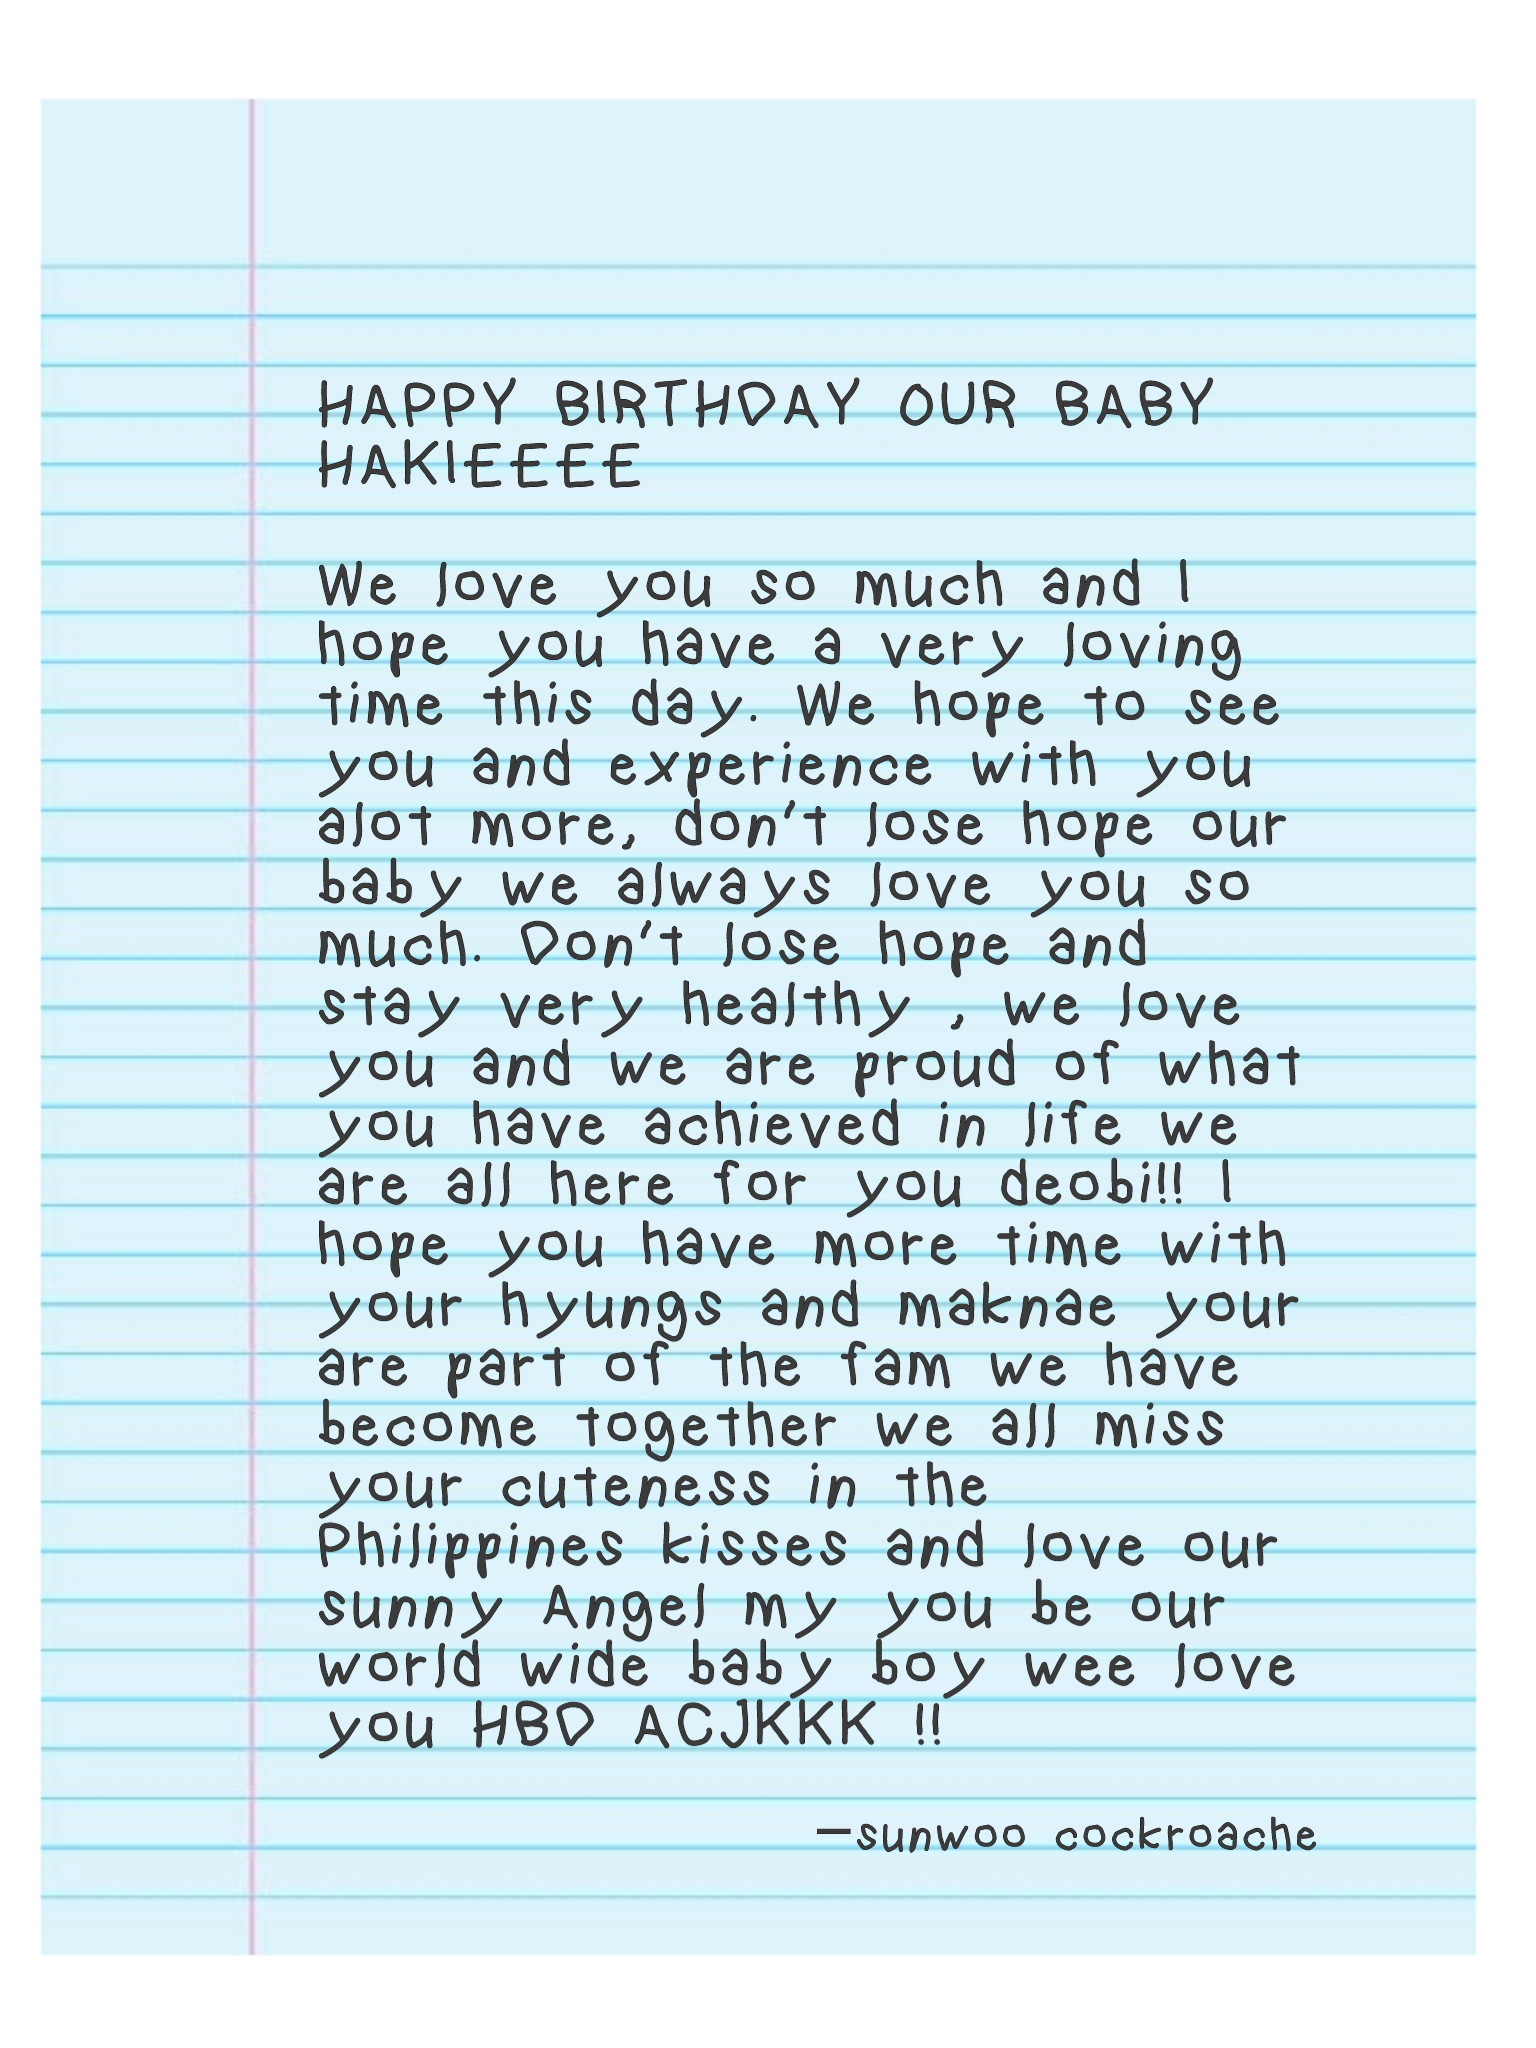 HAPPY BIRTHDAY OUR BABY
HAKIEEEE
We love you so much and I
hope you have a very loving
time this day. We hope to see
you and experience with you
alot more, don't lose hope our
baby we always love you so
much. Don't lose hope and
stay very healthy , we love
you and we are proud of what
you have achieved in life we
are all here for you deobi!! I
hope you have more time with
your hyungs and maknae your
are part of the fam we have
become together we all miss
your cuteness in the
Philippines kisses and love our
sunny Angel my you be our
world wide baby boy wee love
you HBD ACJKKK !!
—sunwoo cockroache